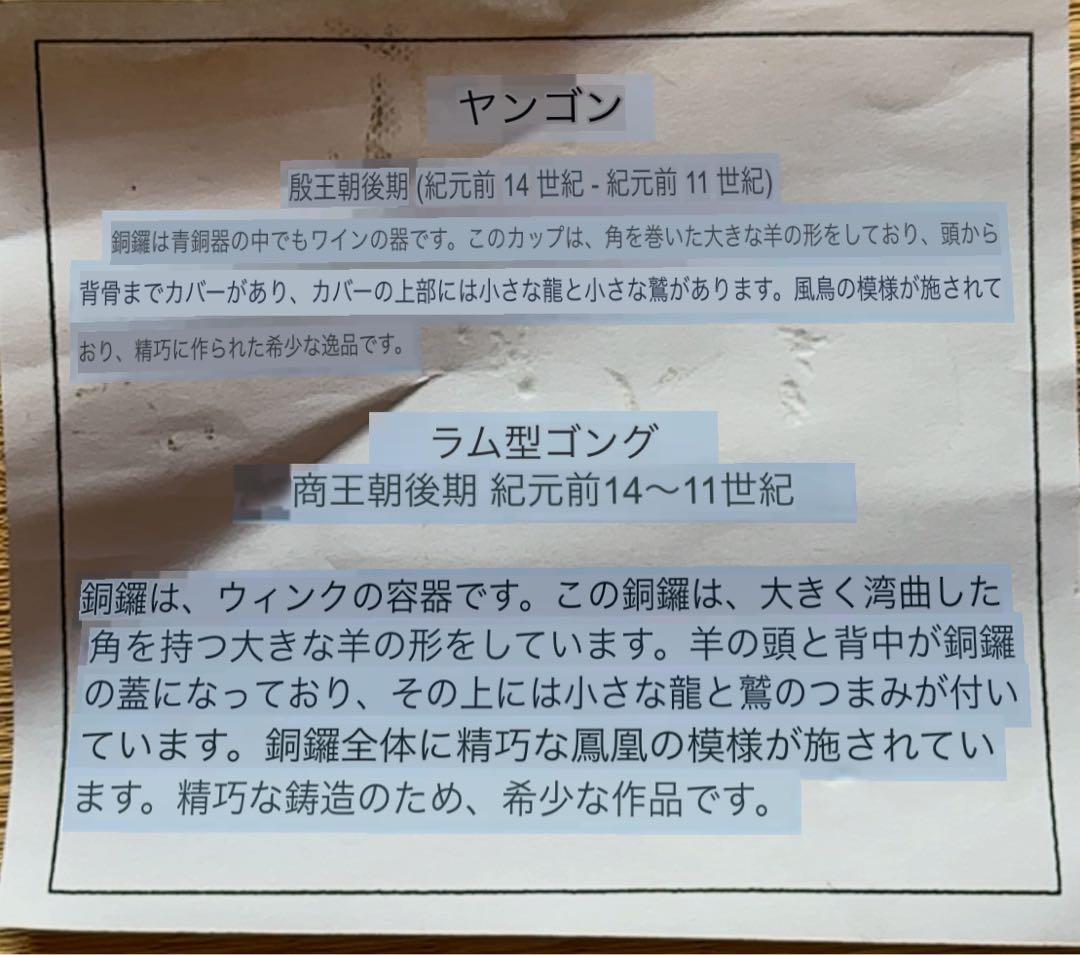 ヤンゴン
殷王朝後期 (紀元前 14 世紀 - 紀元前 11 世紀)
銅鑼は青銅器の中でもワインの器です。このカップは、角を巻いた大きな羊の形をしており、頭から
背骨までカバーがあり、カバーの上部には小さな龍と小さな鷲があります。風鳥の模様が施されて
おり、精巧に作られた希少な逸品です。
ラム型ゴング
商王朝後期 紀元前14〜11世紀
銅鑼は、ウィンクの容器です。この銅鑼は、大きく湾曲した
角を持つ大きな羊の形をしています。羊の頭と背中が銅鑼
の蓋になっており、その上には小さな龍と鷲のつまみが付い
ています。銅鑼全体に精巧な鳳凰の模様が施されてい
ます。精巧な鋳造のため、希少な作品です。